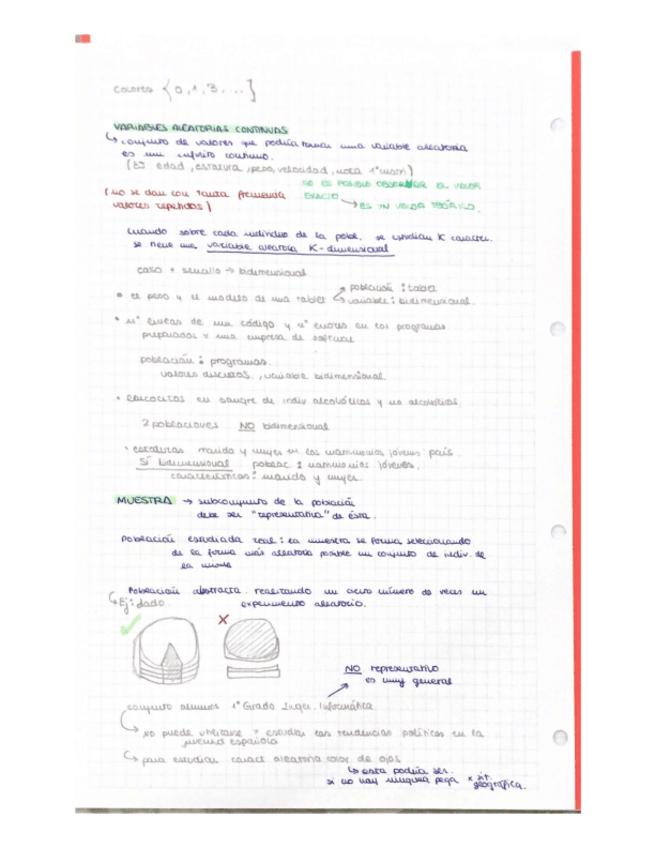 colores {0, 1, 3, ...}
VARIABLES ALEATORIAS CONTINUAS
↳ conjunto de valores que podría tomar una variable aleatoria
es un infinito continuo.
(Ej edad, estatura, peso, velocidad, nota 1º mam)
(no se dan con tanta frecuencia
valores repetidos)
NO ES POSIBLE OBSERVAR EL VALOR
EXACTO → ES UN VALOR TEÓRICO.
Cuando sobre cada individuo de la pobl. se estudian K caracter.
se tiene una variable aleatoria K-dimensional
caso + sencillo → bidimensional
• el peso y el modelo de una tablet
población: tablet
variable: bidimensional.
• nº líneas de un código y nº errores en los programas
preparados x una empresa de software
población: programas.
valores discretos, variable bidimensional.
• en sangre de indiv alcohólicos y no alcohólicos.
2 poblaciones NO bidimensional
• estaturas marido y mujer en los matrimonios jóvenes país.
SÍ bidimensional poblac: matrimonios jóvenes.
características: marido y mujer.
MUESTRA → subconjunto de la población
debe ser "representativa" de ésta.
Población estudiada real: la muestra se forma seleccionando
de la forma más aleatoria posible un conjunto de indiv. de
la misma
Población abstracta. realizando un cierto número de veces un
experimento aleatorio.
↳ Ej: dado.
✓
X
NO representativo
es muy general
conjunto alumnos 1º Grado Ingen. Informática
↳ no puede utilizarse para estudiar las tendencias políticas en la
juventud española
↳ para estudiar caract. aleatoria color de ojos
↳ esta podría ser.
si no hay ninguna pega x sit.
geográfica.